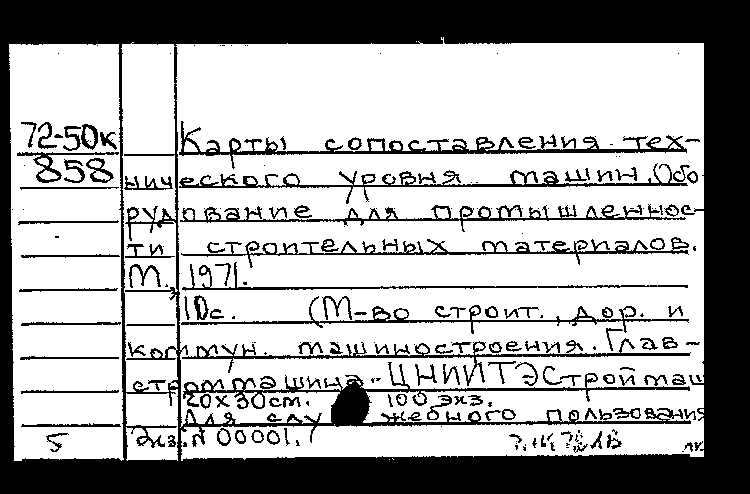 72-50к Карты сопоставления тех-
858 нического уровня машин. Обо
рудование для промышленнос-
ти строительных материалов.
М., 1971.
10с. (М-во строит., дор. и
коммун. машиностроения. Глав-
строммашина. ЦНИИТЭСтроймаш
20х30см. 100 экз.
Для служебного пользования
5 Экз. N 00001. /